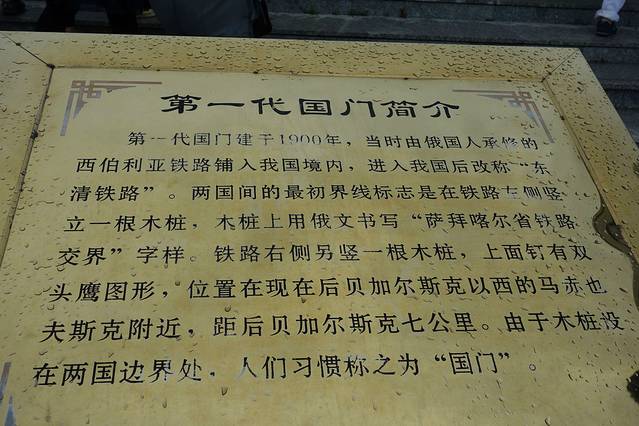 第一代国门简介
第一代国门建于1900年，当时由俄国人承修的
西伯利亚铁路铺入我国境内，进入我国后改称“东
清铁路”。两国间的最初界线标志是在铁路左侧竖
立一根木桩，木桩上用俄文书写“萨拜喀尔省铁路
交界”字样。铁路右侧另竖一根木桩，上面钉有双
头鹰图形，位置在现在后贝加尔斯克以西的马赤也
夫斯克附近，距后贝加尔斯克七公里。由于木桩设
在两国边界处，人们习惯称之为“国门”。